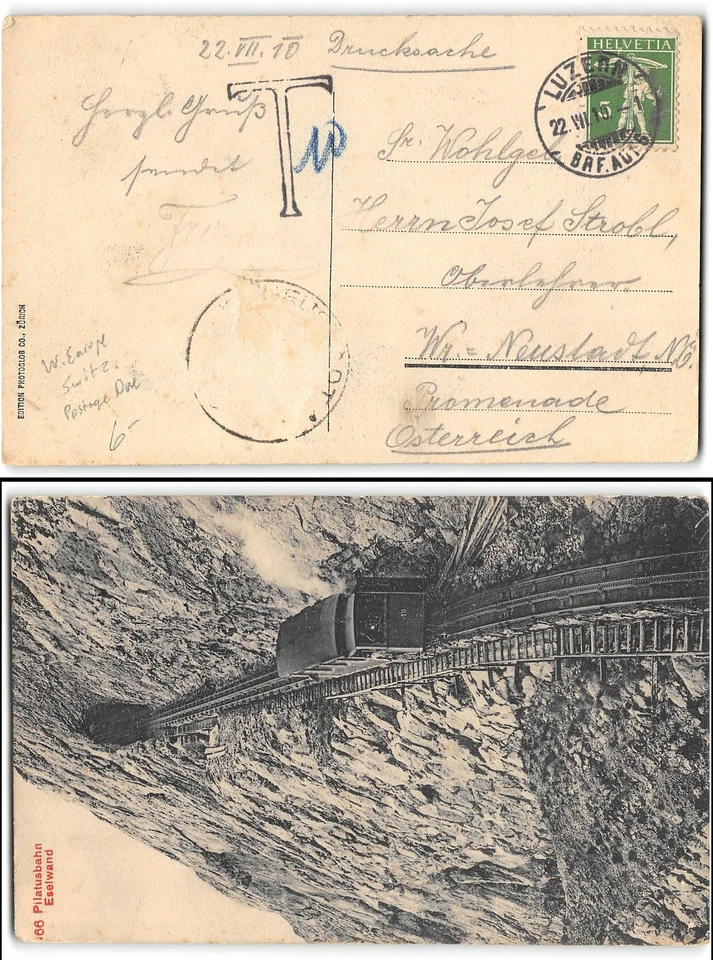 22.VII.10 Drucksache
Herzl. Gruß
sendet
T
10
HELVETIA
5
LUZERN
22.VII.10 - 1
BRF.AUFG
Sr. Wohlgeb
Herrn Josef Strobl,
Oberlehrer
Wr.-Neustadt, N.Ö.
Promenade
Österreich
EDITION PHOTOGLOB CO., ZÜRICH
W. Europe
Switz.
Postage Due
6-
10
66 Pilatusbahn
Eselwand